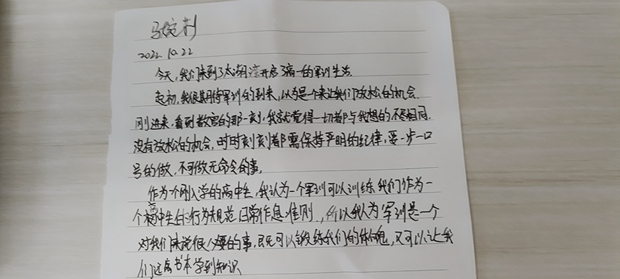 马婉莉
2022. 10.22
今天,我们来到了太湖,开启了痛一的军训生活
起初,我很期待军训的到来,以为是个来让我们放松的机会
刚进来,看到教官的那一刻,我就觉得一切都与我想的不尽相同
没有放松的机会,时时刻刻都需保持严明的纪律,要一步一口
号的做,不可做无命令的事。
作为一个刚入学的高中生,我认为一个军训可以训练我们作为一
个高中生的行为规范日常作息准则,所以我认为军训是一个
对我们来说很人的事,既可以锻练我们的体魄,又可以让我
们远离书本学到知识